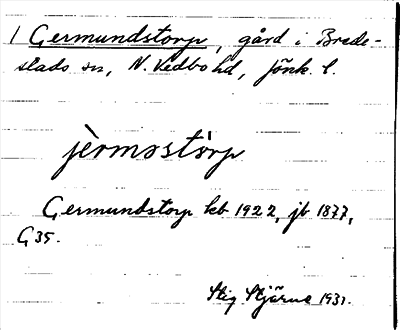 1 Germundstorp, gård i Brede-
stads sn, N. Vedbo hd, Jönk. l.
jèrmostòrp
Germundstorp kb 1922, jb 1877,
G35.
Stig Stjärne 1931.